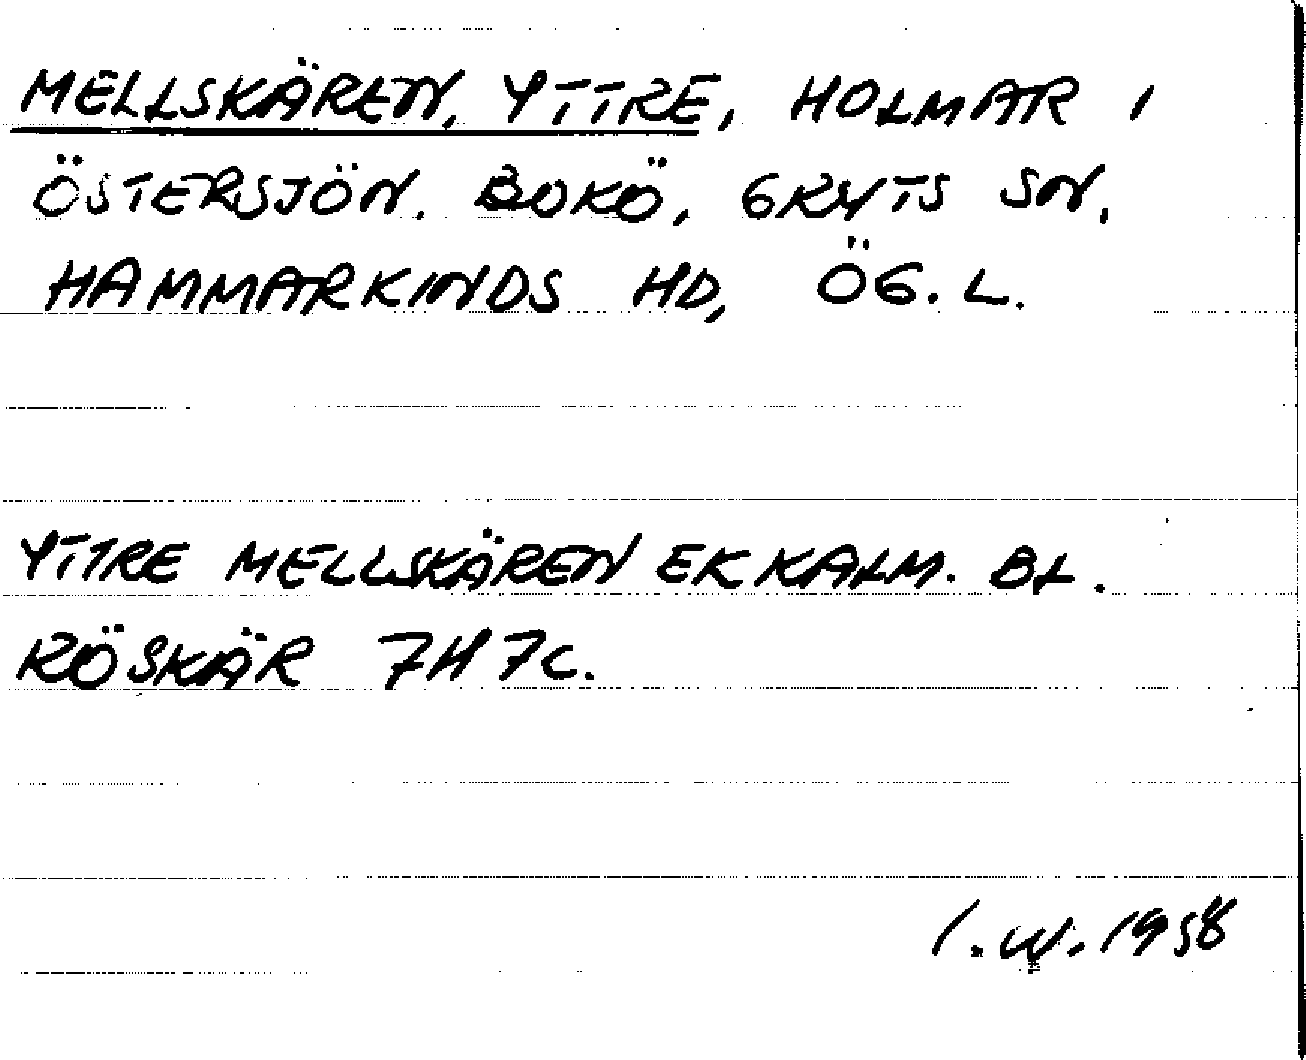 MELLSKÄREN, YTTRE, HOLMAR I
ÖSTERSJÖN. BOKÖ, GRYTS SN,
HAMMARKINDS HD, ÖG. L.
YTTRE MELLSKÄREN EK KALM. BL.
RÖSKÄR 7H 7C.
I. W. 1958